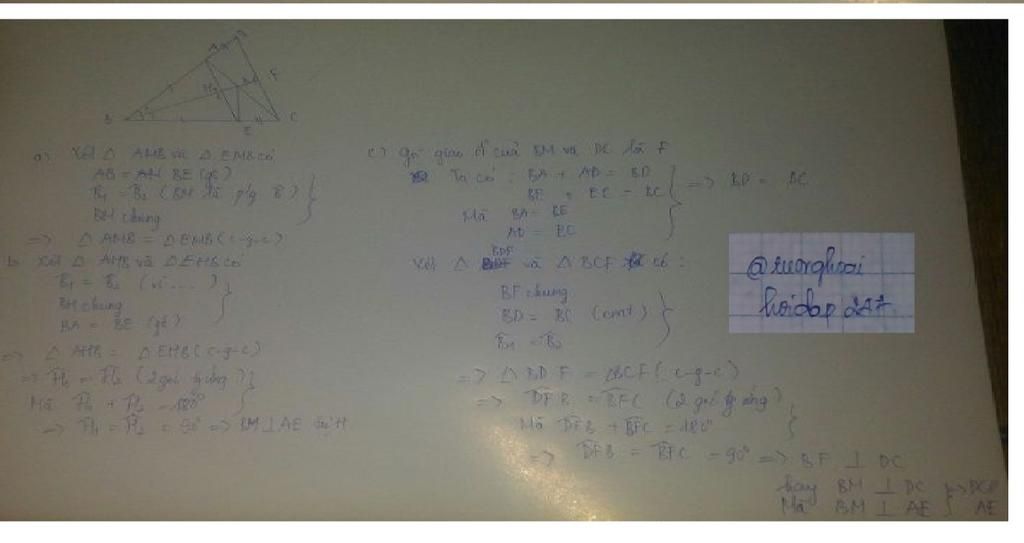 a) Xét Δ AMB và Δ EMB có
AB = BE (gt)
B̂₁ = B̂₂ (BM là p/g B̂)
BM chung
=> Δ AMB = Δ EMB (c-g-c)
b Xét Δ AHB và Δ EHB có
B̂₁ = B̂₂ (vì ... )
BH chung
BA = BE (gt)
=> Δ AHB = Δ EHB (c-g-c)
=> Ĥ₁ = Ĥ₂ (2 góc tg ứng)
Mà Ĥ₁ + Ĥ₂ = 180°
=> Ĥ₁ = Ĥ₂ = 90° => BM ⊥ AE tại H
c) gọi giao đ' của BM và DC là F
Ta có : BA + AD = BD
BE + EC = BC
=> BD = BC
Mà BA = BE
AD = EC
Xét Δ BDF và Δ BCF có :
BF chung
BD = BC (cmt)
B̂₁ = B̂₂
=> Δ BDF = ΔBCF ( c-g-c)
=> DFB = BFC (2 góc tg ứng)
Mà DFB + BFC = 180°
=> DFB = BFC = 90° => BF ⊥ DC
hay BM ⊥ DC
Mà BM ⊥ AE
AE
@truonghoai
hoidap 247